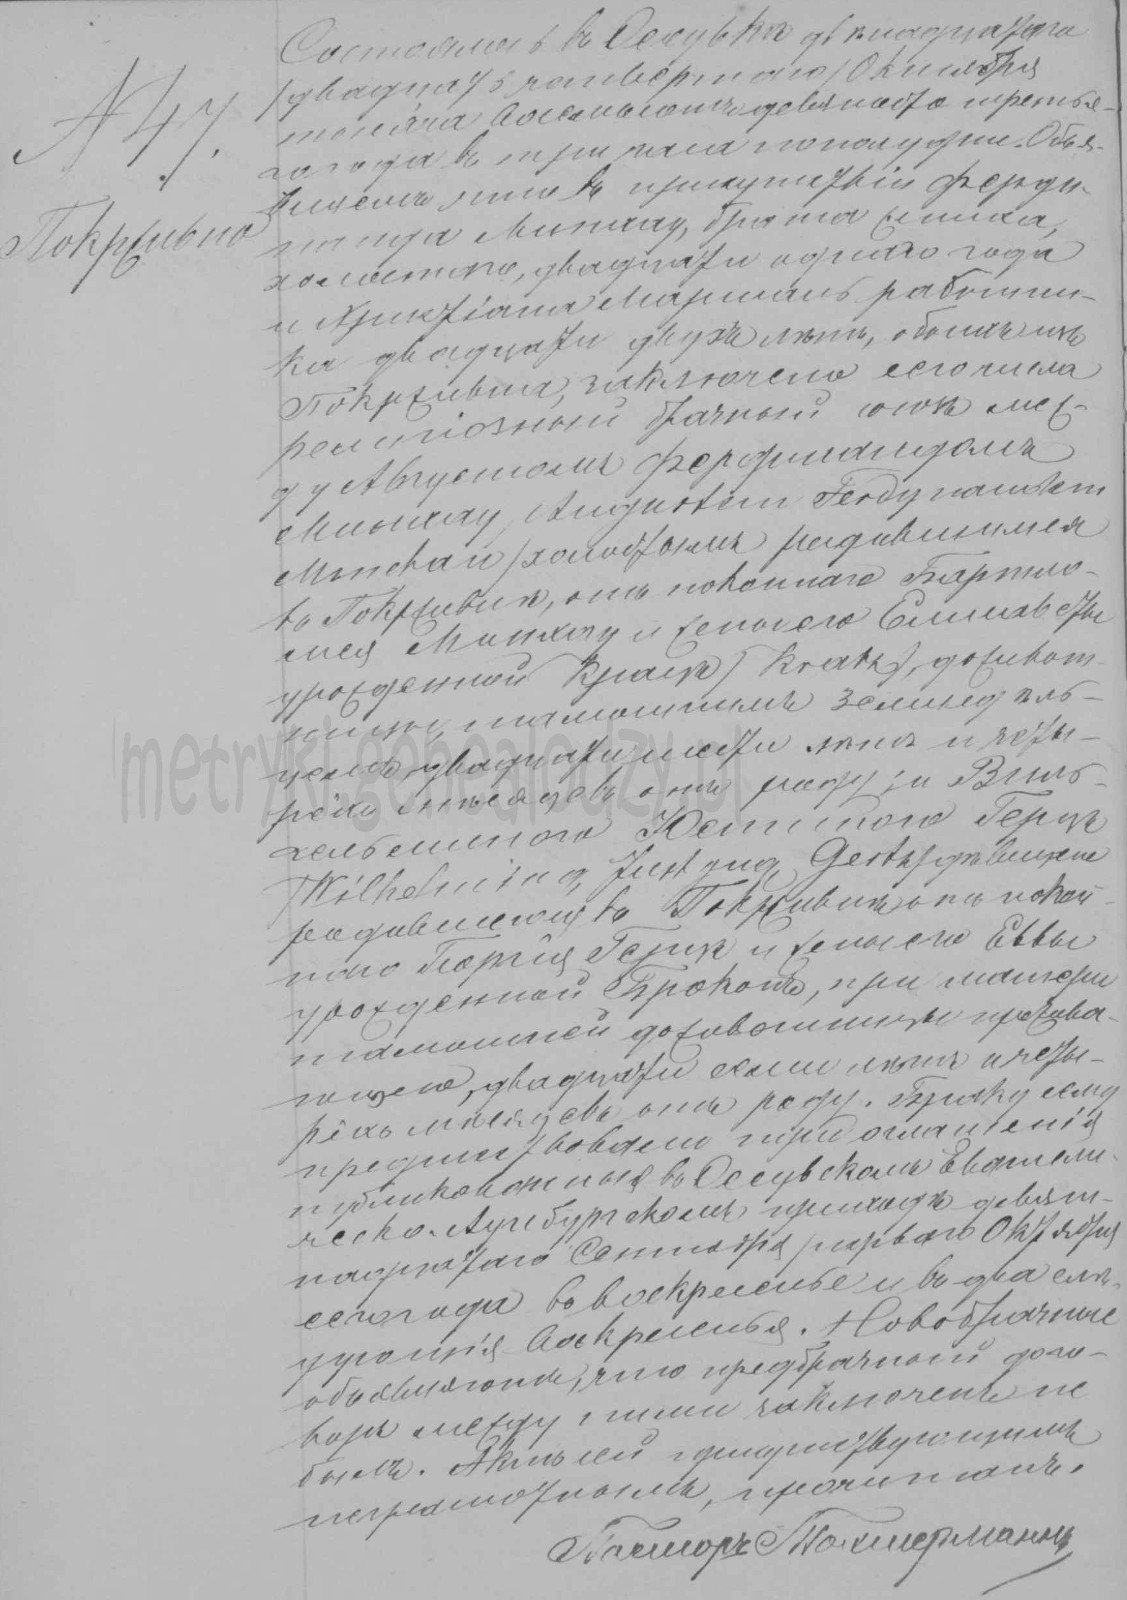 № 47.
Покрживно
Состоялось въ Осувкѣ двѣнадцатаго
/двадцать четвертаго/ Октября
тысяча восемьсотъ девяносто третья-
го года въ три часа пополудни. Объя-
вляемъ что въ присутствіи Ферди-
нанда Минхау, брата жениха,
холостаго, двадцати одного года
и Христіана Маршаль работни-
ка двадцати двухъ лѣтъ, обоихъ изъ
Покрживна, заключенъ сего числа
религіозный брачный союзъ меж-
ду Августомъ Фердинандомъ
Минхау, /Augustem Ferdynandem
Minchau/ холостымъ родившимся
въ Покрживнѣ, отъ покойнаго Бартло-
мея Минхау и жены его Елисаветы
урожденной Крацъ /Kratz/, доживот-
ницы, тамошнимъ земледѣль-
цемъ, двадцати шести лѣтъ и четы-
рехъ мѣсяцевъ отъ роду, и Виль-
хельминою Юстиною Герцъ
/Wilhelmina Justyna Gertz/ дѣвицею
родившеюся въ Покрживнѣ отъ покой-
наго Георгія Герцъ и жены его Еввы
урожденной Брокопъ, при матери
тамошней доживотницы прожива-
ющею, двадцати семи лѣтъ и четы-
рехъ мѣсяцевъ отъ роду. Браку сему
предшествовали три оглашенія
публикованныя въ Осувскомъ Евангели-
ческо-Аугсбургскомъ приходѣ девят-
надцатаго Сентября /перваго Октября
сего года въ воскресенье и въ два слѣ-
дующія воскресенья. Новобрачные
объявляютъ, что предбрачный дого-
воръ между ними заключенъ не
былъ. Актъ сей присутствующимъ
неграмотнымъ, прочитанъ.
Пасторъ
metryki.genealodzy.pl